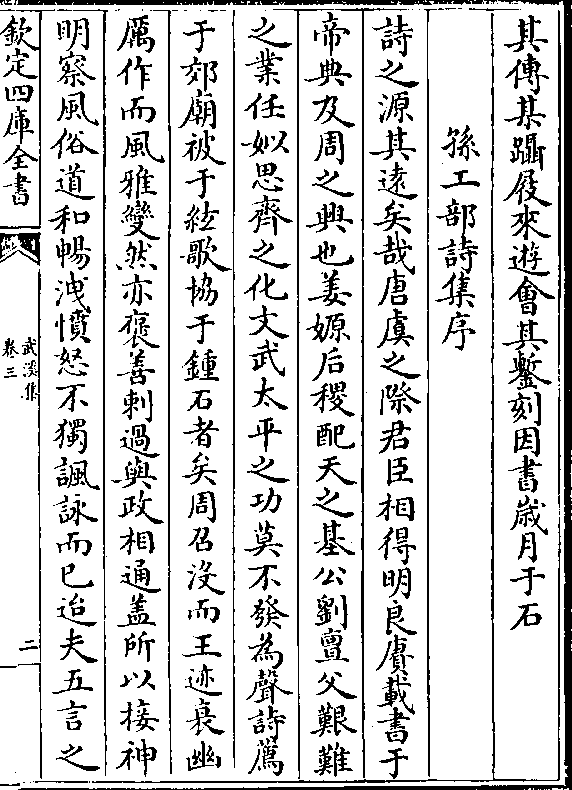 其傳某躡屐來遊會其鏨刻因書歳月于石
孫工部詩集序
詩之源其遠矣哉唐虞之際君臣相得明良賡載書于
帝典及周之興也姜嫄后稷配天之基公劉亶父艱難
之業任姒思齊之化文武太平之功莫不發為聲詩薦
于郊廟被于絃歌協于鍾石者矣周召沒而王迹衰幽
厲作而風雅變然亦褒善刺過與政相通盖所以接神
明察風俗道和暢洩憤怒不獨諷詠而已迨夫五言之
欽定四庫全書
武溪集
卷三
二